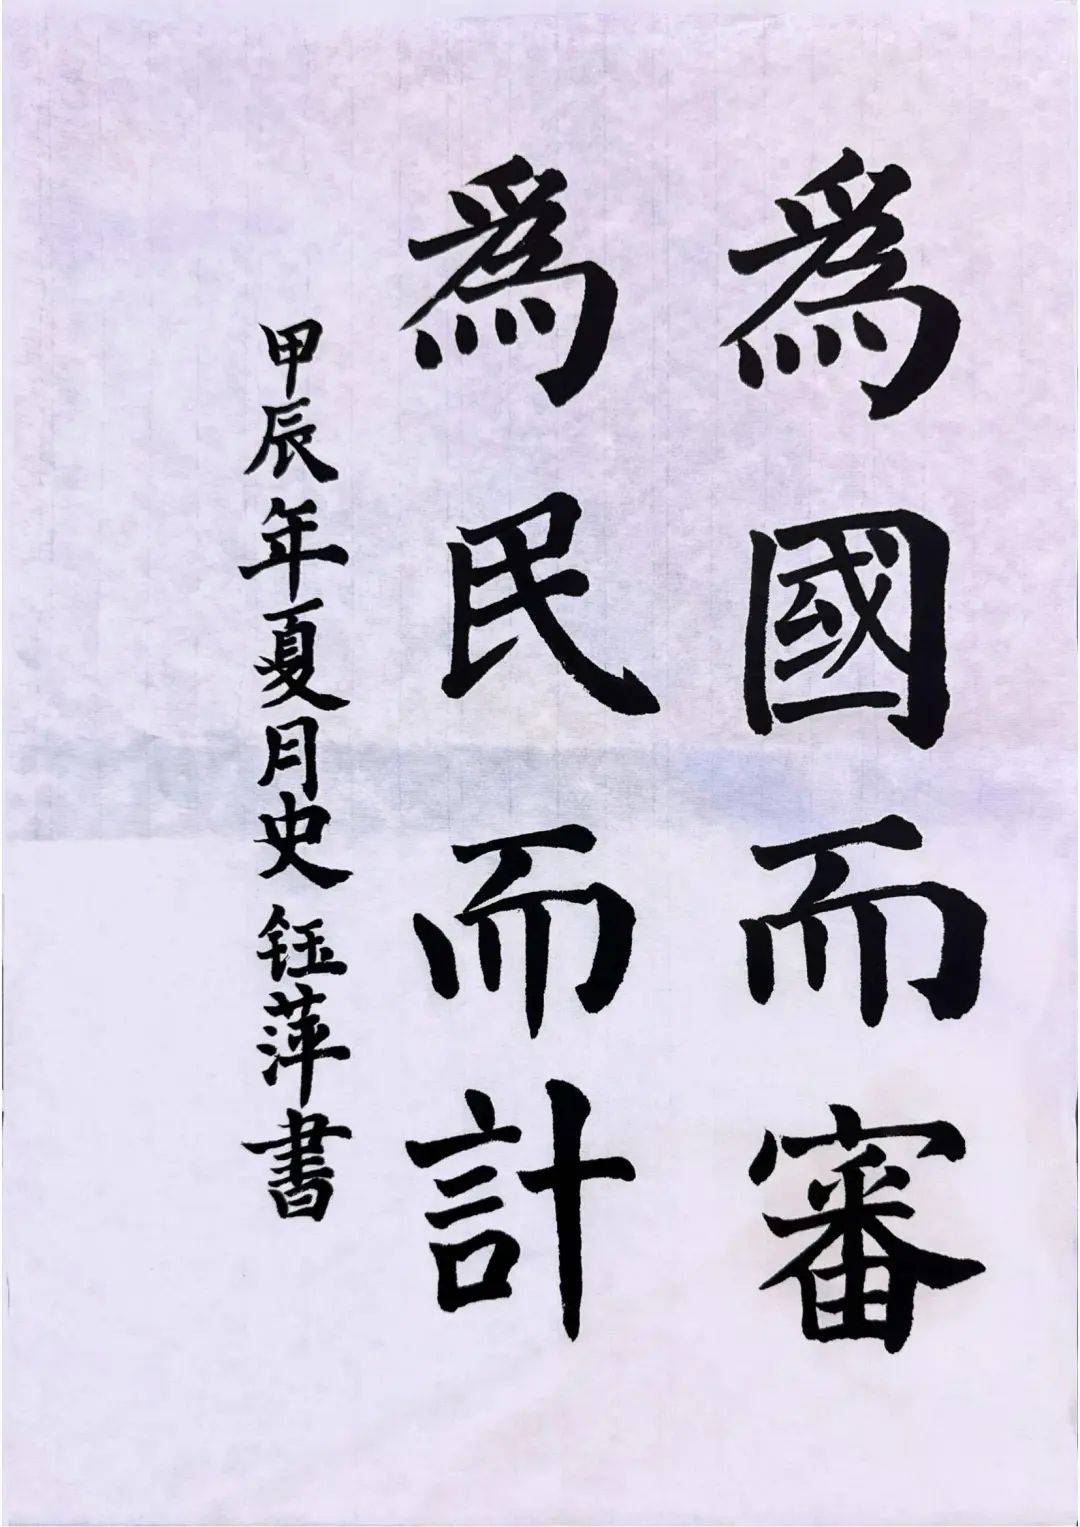 爲國而審
爲民而計
甲辰年夏月史钰萍書